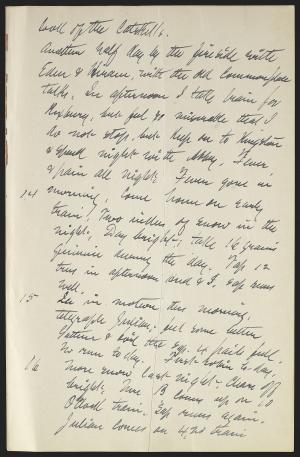 wall of the Catskills.
Another half day by the fireside with
Eden & Hiram, with the old commonplace
talks. In afternoon I take train for
Roxbury, but feel so miserable that I
do not stop, but keep on to Kingston
& spend night with Abby. Fever
& pain all night. Fever gone in
14 morning, come home on early
train. Two inches of snow in the
night. Day bright; take 16 grains
quinine during the day. Tap 12
trees in afternoon and eve. Sap runs
well.
15 Ice in motion this morning,
telegraph Julian; feel some better,
Gather & boil the sap. 4 pails full.
No run to-day. First robin to-day.
16 More snow last night. Clears off
bright; Mrs B comes up on 10
O'clock train. Sap runs again.
Julian comes on 4.20 train